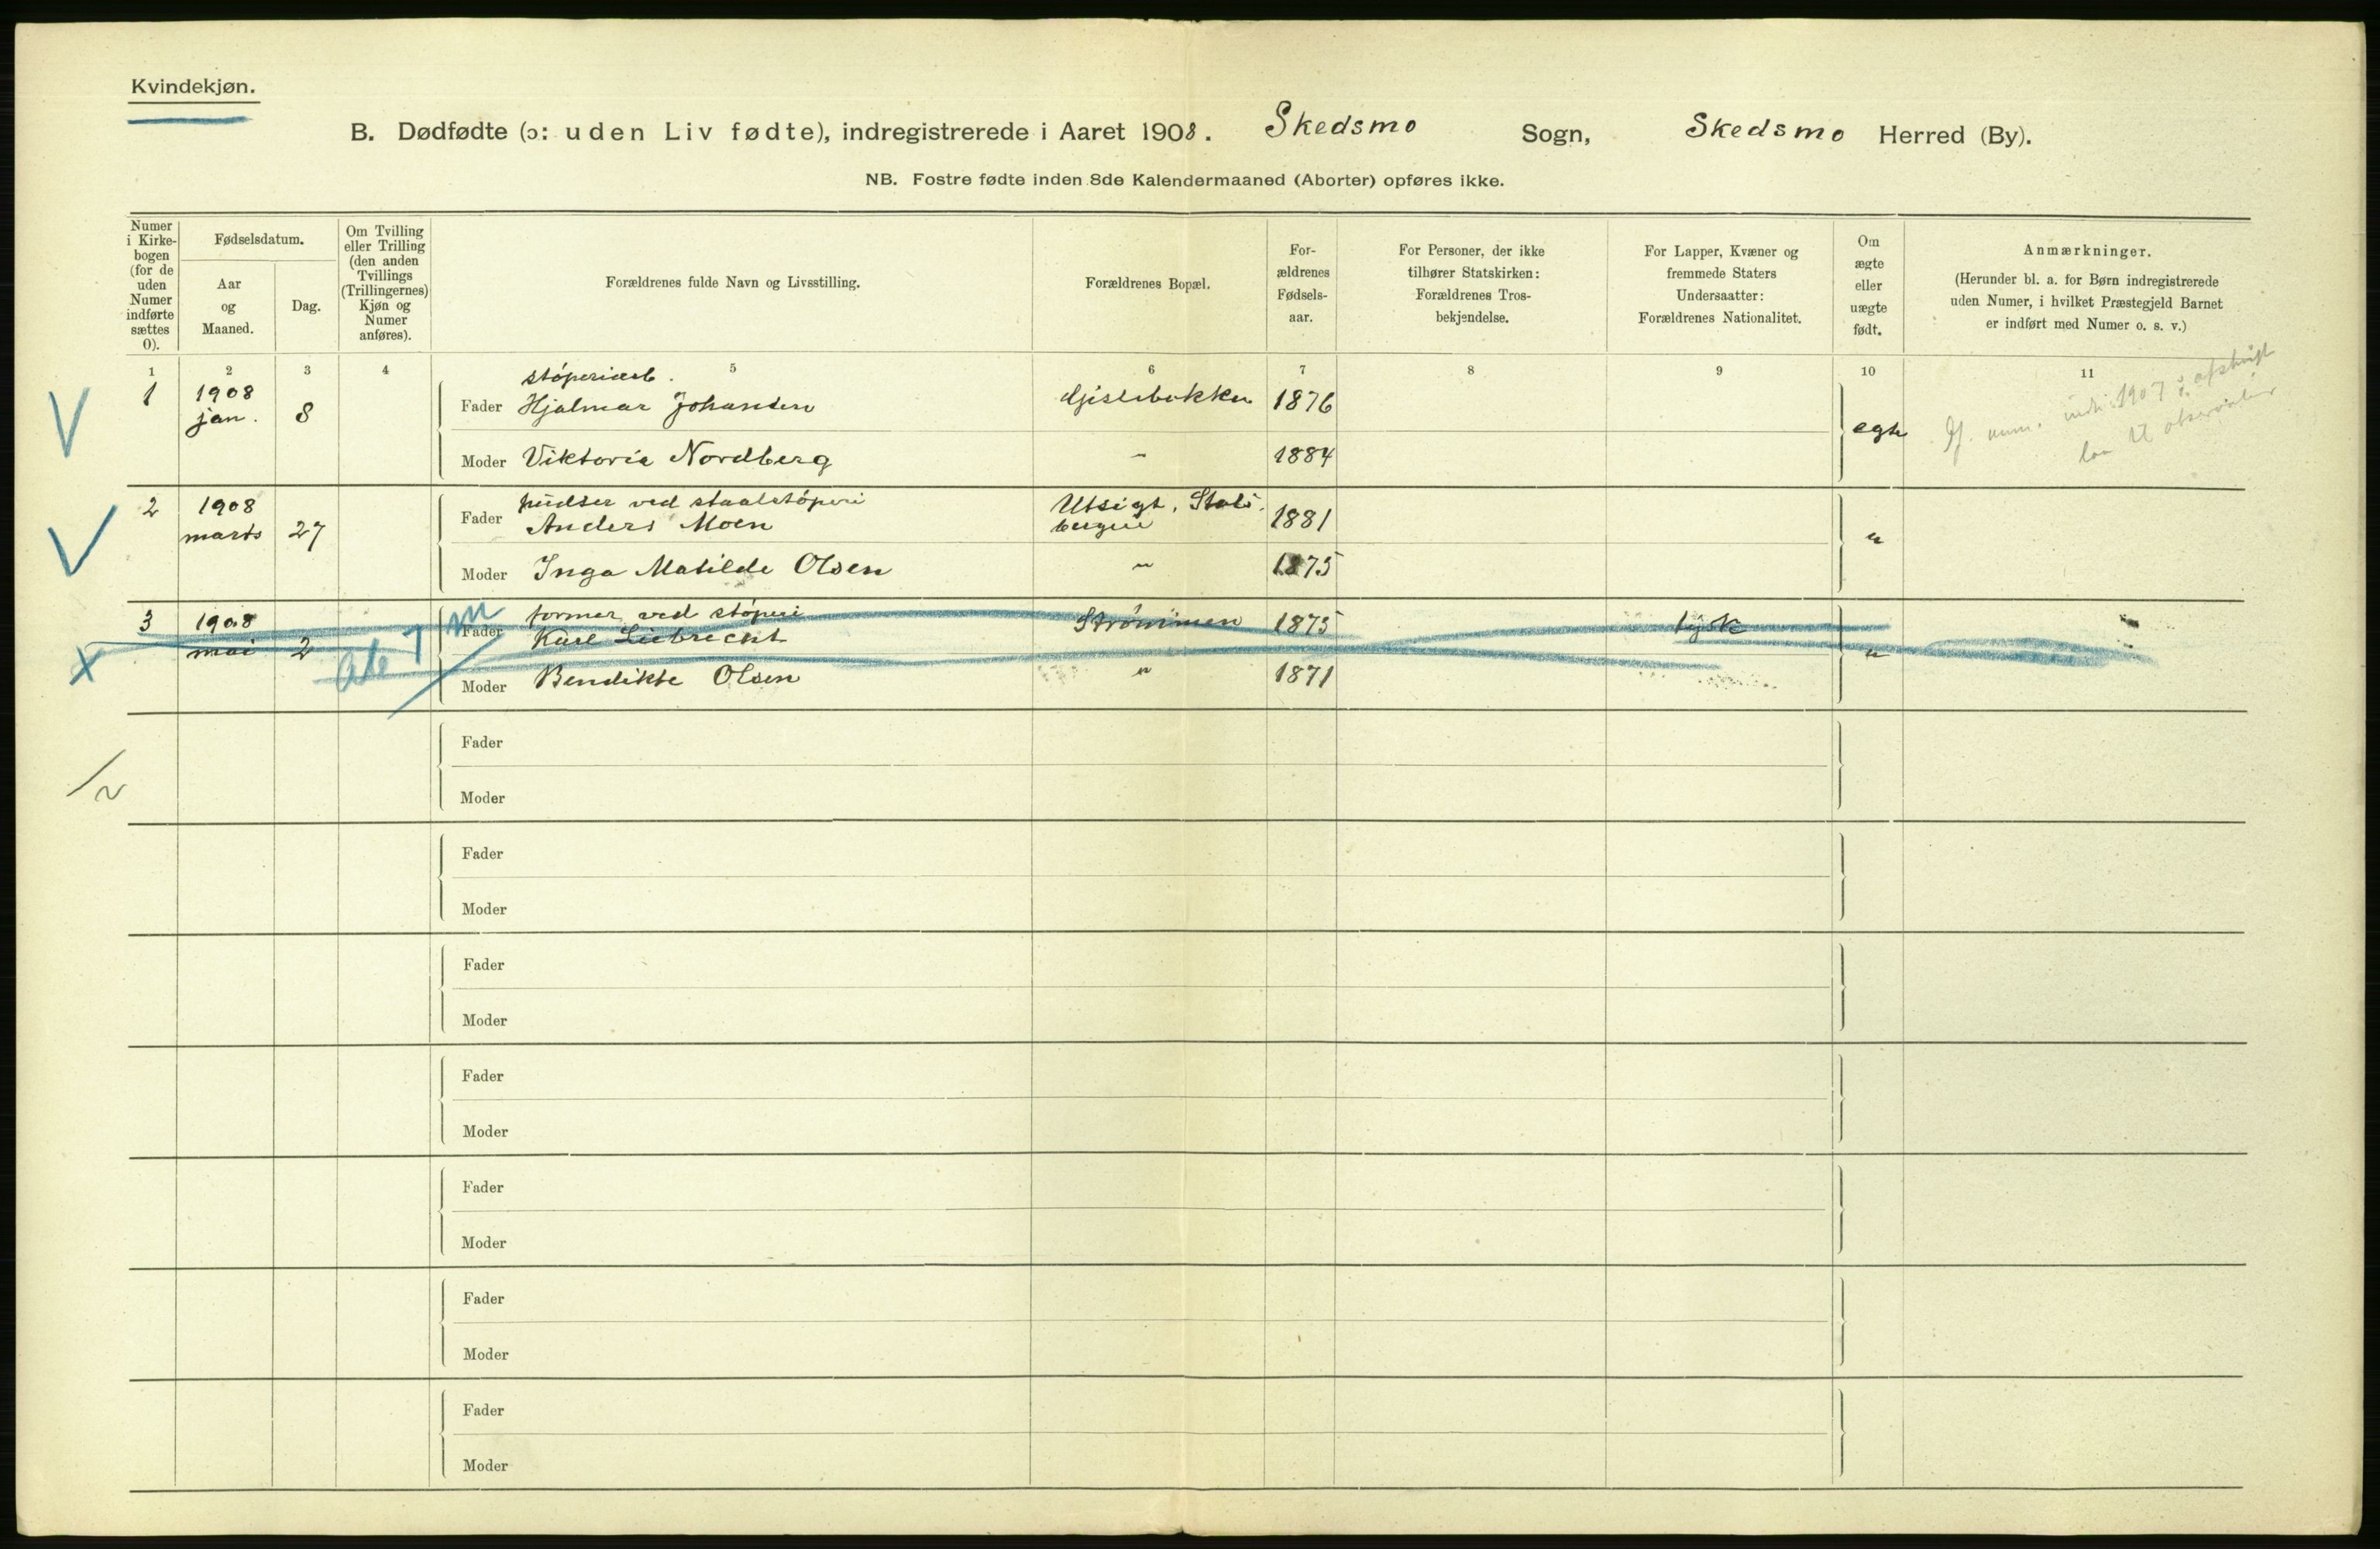 Kvindekjøn.
B. Dødfødte (ɔ: uden Liv fødte), indregistrerede i Aaret 1908. Skedsmo Sogn, Skedsmo Herred (By).
NB. Fostre fødte inden 8de Kalendermaaned (Aborter) opføres ikke.
Numer i Kirke-bogen (for de uden Numer indførte sættes 0).
Fødselsdatum.
Aar og Maaned.
Dag.
Om Tvilling eller Trilling (den anden Tvillings (Trillingernes) Kjøn og Numer anføres).
Forældrenes fulde Navn og Livsstilling.
Forældrenes Bopæl.
For-ældrenes Fødsels-aar.
For Personer, der ikke tilhører Statskirken: Forældrenes Tros-bekjendelse.
For Lapper, Kvæner og fremmede Staters Undersaatter: Forældrenes Nationalitet.
Om ægte eller uægte født.
Anmærkninger.
(Herunder bl. a. for Børn indregistrerede uden Numer, i hvilket Præstegjeld Barnet er indført med Numer o. s. v.)
1 2 3 4 5 6 7 8 9 10 11
støperiarb.
1 1908 jan. 8 Fader Hjalmar Johansen 1876 egte
Moder Viktoria Nordberg " 1884
pudser ved staalstøperi
2 1908 marts 27 Fader Anders Moen Utsigt, 1881 "
Moder Inga Matilde Olsen " 1875
former ved støperi
3 1908 mai 2 Fader Karl Liebrecht Strømmen 1875 tysk "
Moder Bendikte Olsen " 1871
Fader
Moder
Fader
Moder
Fader
Moder
Fader
Moder
Fader
Moder
Fader
Moder
Fader
Moder